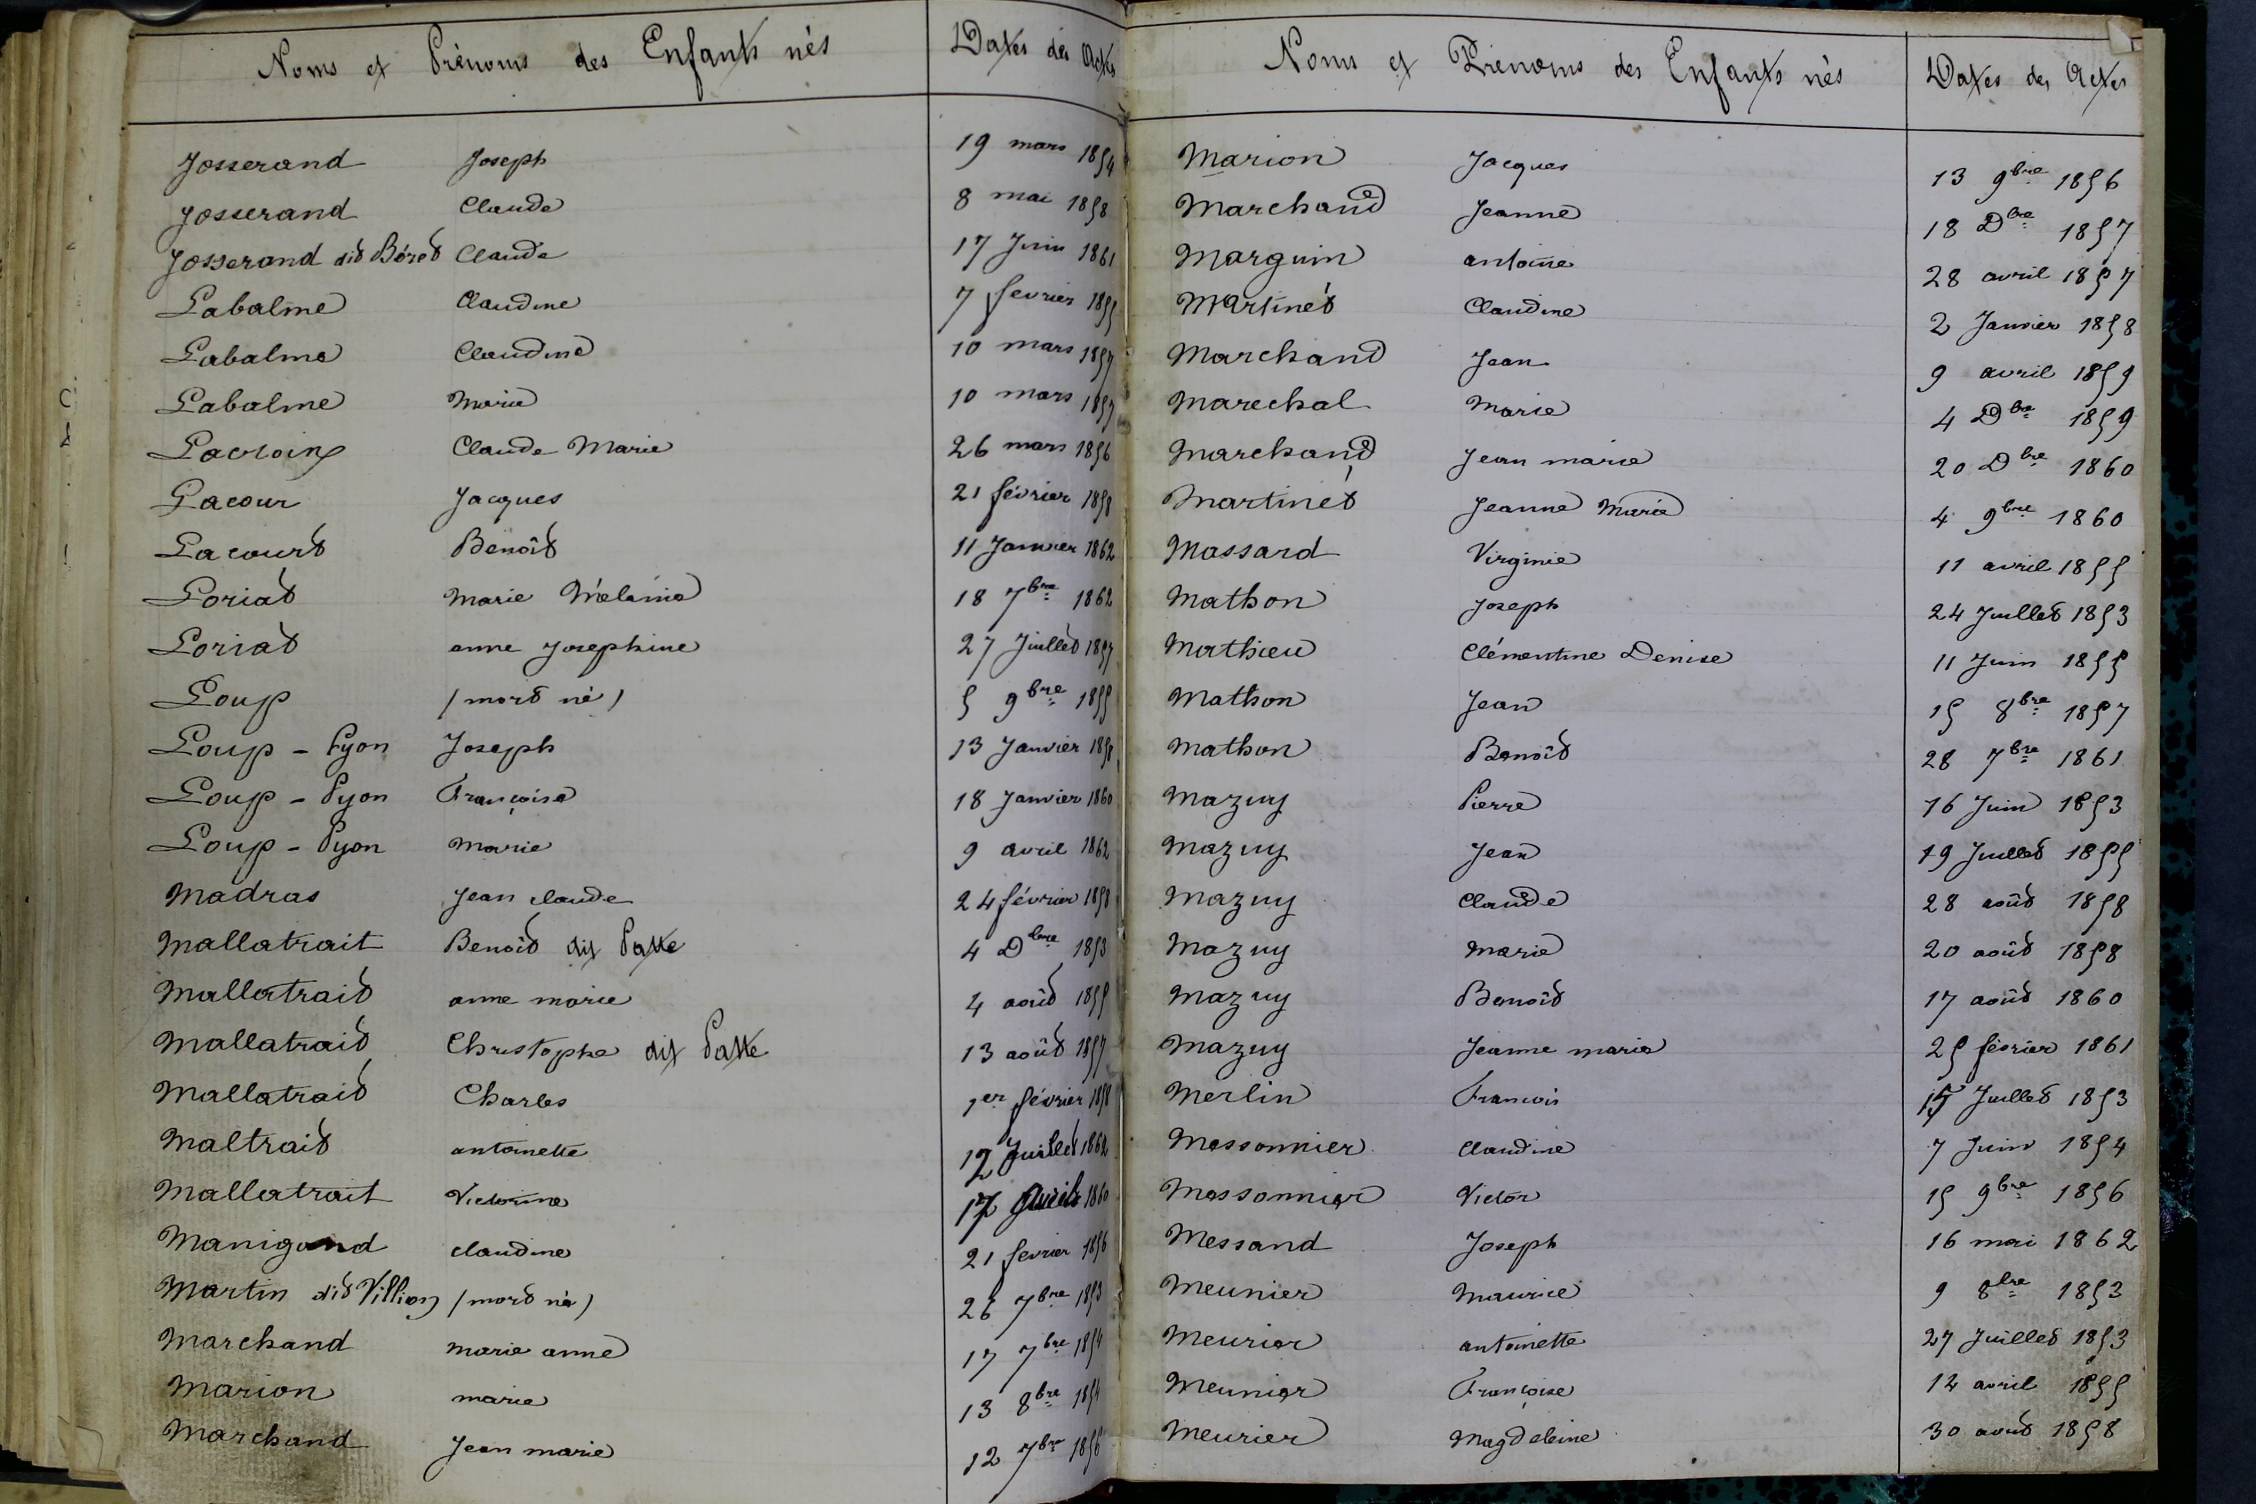 Noms et Prénoms des Enfants nés Dates des Actes
Josserand Joseph 19 mars 1854
Josserand Claude 8 mai 1858
Josserand dit Béret Claude 17 Juin 1861
Labalme Claudine 7 fevrier 1855
Labalme Claudine 10 mars 1857
Labalme Marie 10 mars 1857
Lacroix Claude Marie 26 mars 1856
Lacour Jacques 21 février 1858
Lacourt Benoît 11 Janvier 1862
Loriat Marie Mélanie 18 7bre 1862
Loriat anne Josephine 27 Juillet 1857
Loup (mort né) 5 9bre 1855
Loup - Pyon Joseph 13 Janvier 1858
Loup - Pyon Françoise 18 Janvier 1860
Loup - Pyon Marie 9 avril 1862
Madras Jean claude 24 février 1858
Mallatrait Benoît dit Patte 4 Dbre 1853
Mallatrait anne marie 4 août 1855
Mallatrait Christophe dit Patte 13 août 1857
Mallatrait Charles 1er février 1858
Maltrait antoinette 12 Juillet 1862
Mallatrait Victorine 17 1860
Manigand claudine 21 fevrier 1856
Martin dit Villion (mort né) 26 7bre 1853
Marchand marie anne 17 7bre 1854
Marion marie 13 8bre 1854
Marchand Jean marie 12 7bre 1856
Noms et Prénoms des Enfants nés Dates des Actes
Marion Jacques 13 9bre 1856
Marchand Jeanne 18 Dbre 1857
Marguin antoine 28 avril 1857
Martinet Claudine 2 Janvier 1858
Marchand Jean 9 avril 1859
Marechal Marie 4 Dbre 1859
Marchand Jean marie 20 Dbre 1860
Martinet Jeanne Marie 4 9bre 1860
Massard Virginie 11 avril 1855
Mathon Joseph 24 Juillet 1853
Mathieu Clémentine Denise 11 Juin 1855
Mathon Jean 15 8bre 1857
Mathon Benoît 28 7bre 1861
Mazuy Pierre 16 Juin 1853
Mazuy Jean 19 Juillet 1855
Mazuy Claude 28 août 1858
Mazuy Marie 20 août 1858
Mazuy Benoît 17 août 1860
Mazuy Jeanne marie 25 février 1861
Merlin Francois 15 Juillet 1853
Messonnier Claudine 7 Juin 1854
Messonnier Victor 15 9bre 1856
Messand Joseph 16 mai 1862
Meunier Maurice 9 8bre 1853
Meurier antoinette 27 Juillet 1853
Meunier Françoise 12 avril 1855
Meurier Magdeleine 30 août 1858